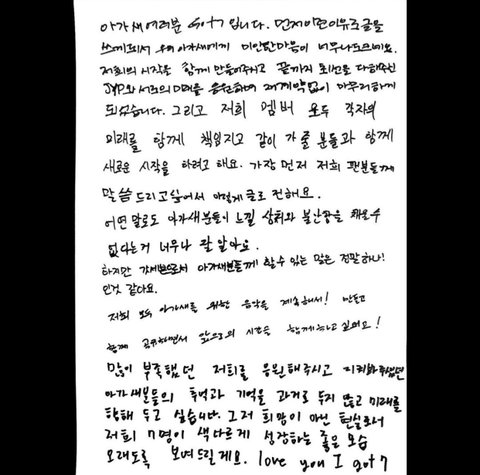 아가새여러분 Got7 입니다. 먼저이런이유로글을
쓰게되서 우리아가새에게 미안한마음이 너무나도드네요.
저희의 시작을 함께 만들어주시고 끝까지 최선을 다해주신
JYP와 서로의 미래를 응원하며 재계약없이 마무리하게
되었습니다. 그리고 저희 멤버 모두 각자의
미래를 함께 책임지고 같이 가줄 분들과 함께
새로운 시작을 하려고 해요. 가장 먼저 저희 팬분들께
말씀 드리고싶어서 이렇게 글로 전해요.
어떤 말로도 아가새분들이 느낄 상처와 불안감을 채울수
없다는거 너무나 잘 알아요.
하지만 갓세븐으로서 아가새분들께 할수 있는 말은 정말 하나!
인것 같아요.
저희 모두 아가새를 위한 음악을 계속해서! 만들고
함께 공유하면서 앞으로의 시간을 함께하고 싶어요!
많이 부족했던 저희를 응원해주시고 지켜봐주셨던
아가새분들의 추억과 기억을 과거로 두지 않고 미래를
향해 두고 싶습니다. 그저 희망이 아닌 현실로서
저희 7명이 색다르게 성장하는 좋은 모습
오래도록 보여드릴게요. love you I got7